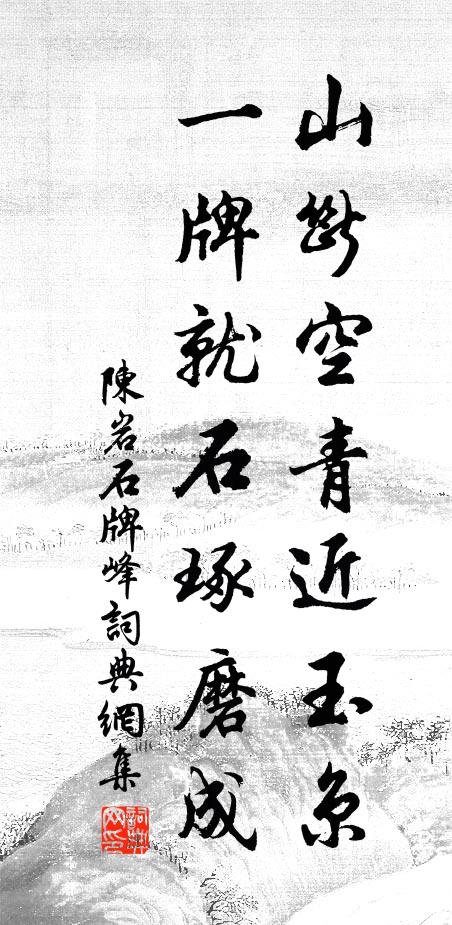 山斷空青近玉京
一牌就石琢磨成
陳岩石牌峰詞典網集